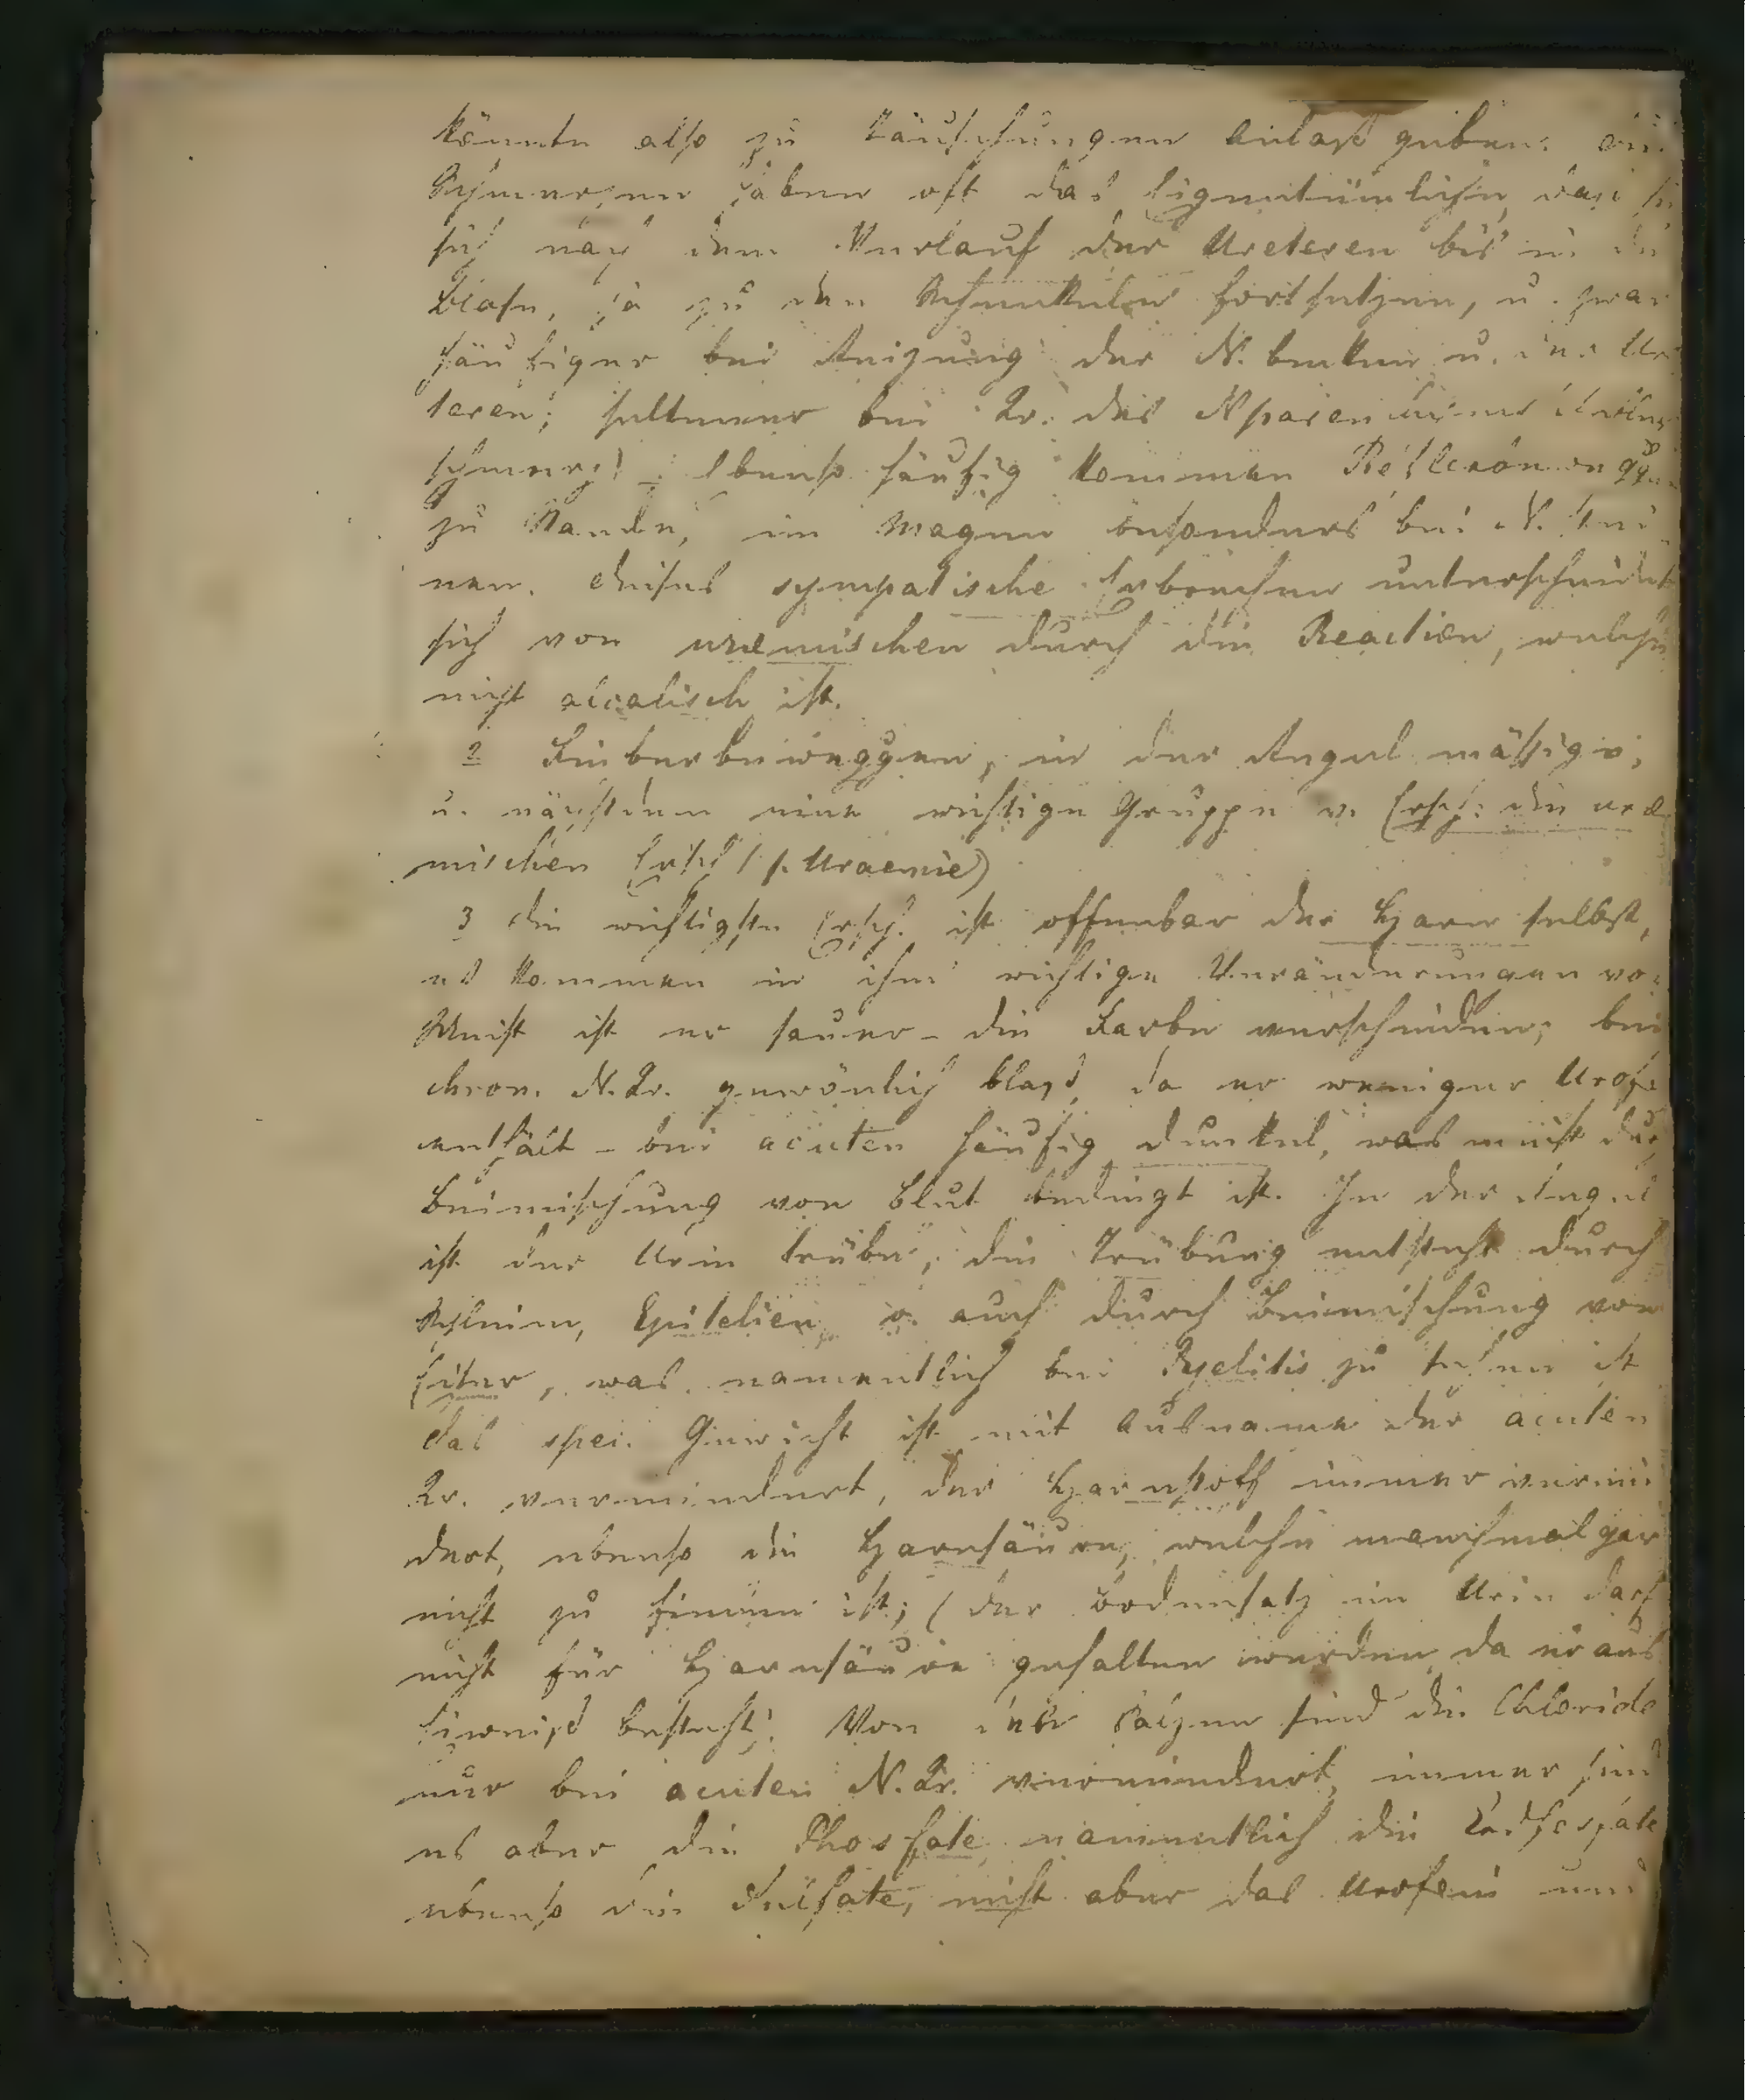 könnte also zu Täuschungen Anlass geben: die
Schmerzen haben oft das Eigentümliche, dass sie
sich nach dem Verlauf der Ureteren bis in die
Blase, ja zu den Schenkeln fortsetzen, u. zwar
häufiger bei Reizung der N. becken u. der Ure
teren; seltener bei Kr. des Nparenchymes
schmerz). Ebenso häufig kommen Reflexbewggen
zu Stande, im Magen besonders bei N. stei
nen. dieses sympatische Erbrechen unterscheidet
sich von uremischen durch die Reaction, welche
nicht alcalisch ist.
2 Fieberbeweggen, in der Regel mässige;
u. nächstdem eine wichtige Gruppe v. Ersch: die urae
mischen Ersch (s. Uraemie)
3 die wichtigste Ersch. ist offenbar der Harn selbst,
es kommen in ihm wichtige Veränderungen vor
Meist ist er sauer – die Farbe verschieden; bei
chron. N. Kr. gewönlich blass, da er weniger Urofe
enthält – bei acuten häufig dunkel, was meist durch
Beimischung von Blut bedingt ist. In der Regel
ist der Urin trübe, die Trübung entsteht durch
Schleim, Epitelien o. auch durch Beimischung von
Eiter, was namentlich bei Pyelitis zu sehen ist
das spec. Gewicht ist mit Ausname der acuten
Kr. vermindert, der Harnstoff immer vermin
dert, ebenso die Harnsäure, welche manchmal gar
nicht zu finden ist; (der Bodensatz im Urin darf
nicht für Harnsäure gehalten werden, da er aus
Eiweiss besteht). Von den Salzen sind die Chloride
nur bei acuten N. Kr. vermindert, immer sind
es aber die Phosfate, namentlich die Erdfosfate
ebenso die Sulfate, nicht aber das Urofein und